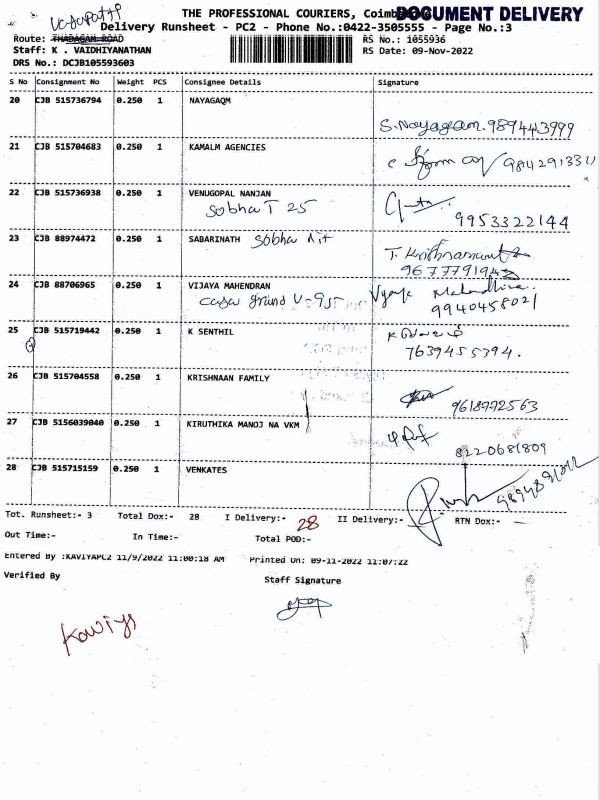 THE PROFESSIONAL COURIERS, Coimbatore
DOCUMENT DELIVERY
Delivery Runsheet - PC2 - Phone No.:0422-3505555 - Page No.:3
Route: THADAGAM ROAD
RS No.: 1055936
Staff: K . VAIDHIYANATHAN
RS Date: 09-Nov-2022
DRS No.: DCJB105593603
S No Consignment No Weight PCS Consignee Details Signature
20 CJB 515736794 0.250 1 NAYAGAQM
S.Nayagam. 989443999
21 CJB 515704683 0.250 1 KAMALM AGENCIES
22 CJB 515736938 0.250 1 VENUGOPAL NANJAN
Sobha T 25
9953322144
23 CJB 88974472 0.250 1 SABARINATH Sobha
T. Krishnamurt
24 CJB 88706965 0.250 1 VIJAYA MAHENDRAN
casa grand V-95
9940458021
25 CJB 515719442 0.250 1 K SENTHIL
7639455394.
26 CJB 515704558 0.250 1 KRISHNAAN FAMILY
9618772563
27 CJB 5156039040 0.250 1 KIRUTHIKA MANOJ NA VKM
8220681809
28 CJB 515715159 0.250 1 VENKATES
Tot. Runsheet:- 3 Total Dox:- 28 I Delivery:- 28 II Delivery:- RTN Dox:- -
Out Time:- In Time:- Total POD:-
Entered By :KAVIYAPC2 11/9/2022 11:00:18 AM Printed On: 09-11-2022 11:07:22
Verified By
Staff Signature
Kaviya